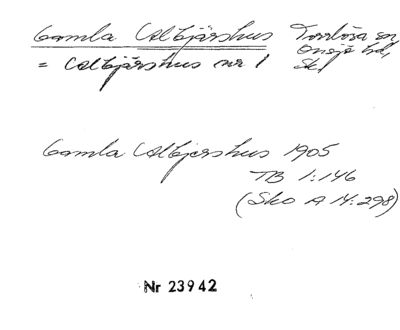 Gamla Albjärshus Torrlösa sn,
Onsjö hd,
= Albjärshus nr 1 Sk,
Gamla Albjershus 1905
TB 1:146
(Sko A 14:298)
Nr 23942